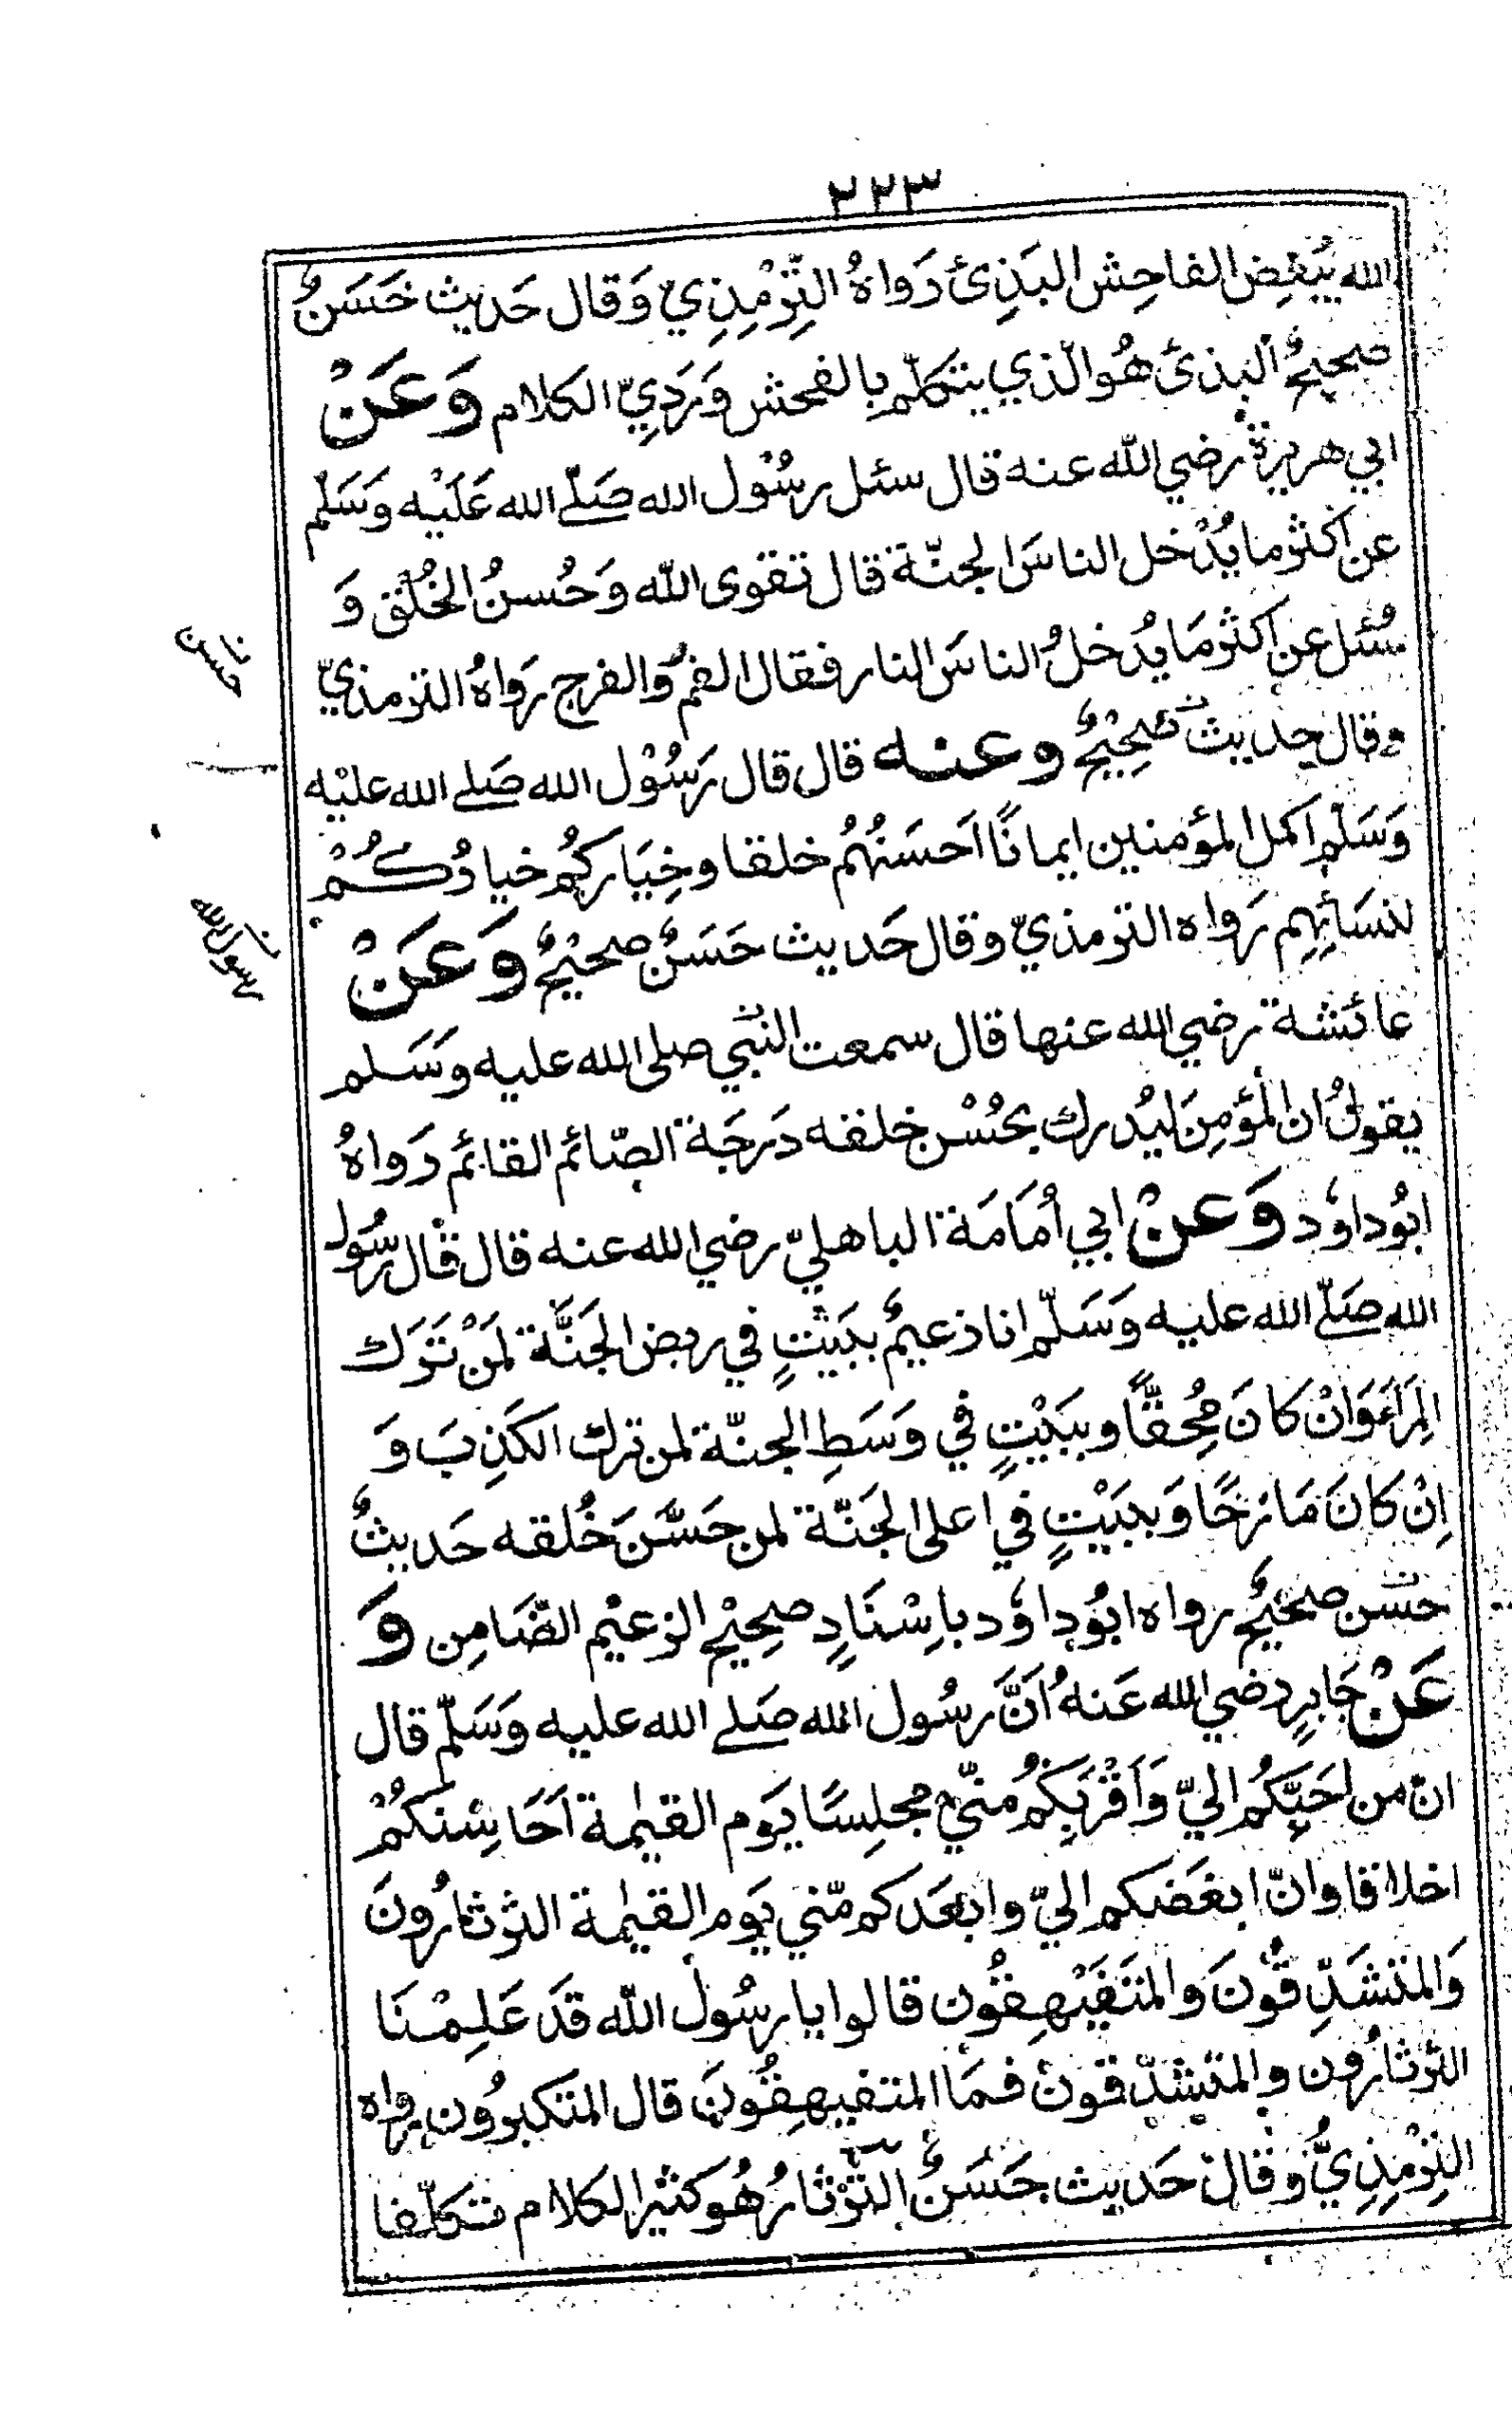 ٢٢٣
الله يُبْغِض الفاحِش البَذِئ رَواهُ التِّرْمِذِيّ وَقال حَديث حَسَنٌ
صَحِيحٌ البذئ هُو الّذي يتكلّم بِالفحش وَرَدِيّ الكلام وَعَنْ
ابي هريرة رضي الله عنه قال سئل رسُوْل الله صَلّے الله عَلَيْه وَسَلّم
عن اكثر ما يُدْخل الناسَ الجنّة قال تقوى الله وَحُسنُ الخُلُق وَ
سُئل عن اكثر مَا يُدخلُ الناسَ النار فقال الفمُ والفرج رَواهُ الترمذيّ
وقال حديث صَحِيْحٌ وعنه قال قال رَسُوْل الله صَلے الله عليْه
وَسَلّم اكمل المؤمنين ايمانًا اَحسَنُهُم خلقا وخِيَاركُم خيارُكُمْ
لنسَائِهِم رَواه الترمذيّ وقال حَديث حَسَنٌ صحيْحٌ وَعَنْ
عائشة رضي الله عنها قال سمعت النبّي صلى الله عليه وَسَلم
يقولُ ان المؤمِنَ ليُدرك بحُسْن خلقه دَرجَة الصّائم القائم رَواهُ
ابُوداوٗد وَعنْ ابي اُمَامَة الباهليّ رضي الله عنه قال قال رسُول
الله صَلّے الله عليه وَسَلّم انا زعيمٌ ببَيْتٍ في ربض الجَنَّة لمَنْ تَرَك
المِرَاءَ وَانْ كانَ مُحِقًّا وببَيْتٍ في وَسَطِ الجنّة لمن ترك الكَذِبَ وَ
اِنْ كانَ مَازحًا وَببَيْتٍ في اعلى الجَنّة لمن حَسَّنَ خُلقه حَديثٌ
حَسَن صحيْحٌ رواه ابُوداوٗد باِسْنَادٍ صحِيْح الزعيْم الضّامِن وَ
عَنْ جَابرٍ رضي الله عَنهُ اَنَّ رسُول الله صَلے الله عليه وَسَلّم قال
انّ من احَبّكُم اليّ وَاَقْرَبِكُم منّي مجلِسًا يَوم القيٰمة اَحَاسِنكُمْ
اخلاقا وانّ ابغَضَكم اليّ وابعَدكم مّني يَوم القيٰمة الثرثارُونَ
وَالمتشَدِّقُونَ والمتَفَيْهِقُون قالوا يا رسُول الله قَد عَلِمْنَا
الثرْثارُون والمتشدّقون فمَا المتفيهِقُونَ قال المتكبرُون رواه
التِرْمِذِيُّ وقال حَديث حَسَنٌ الثّرْثارُ هُو كثير الكلام تكلّفا
حسن
رسول الله